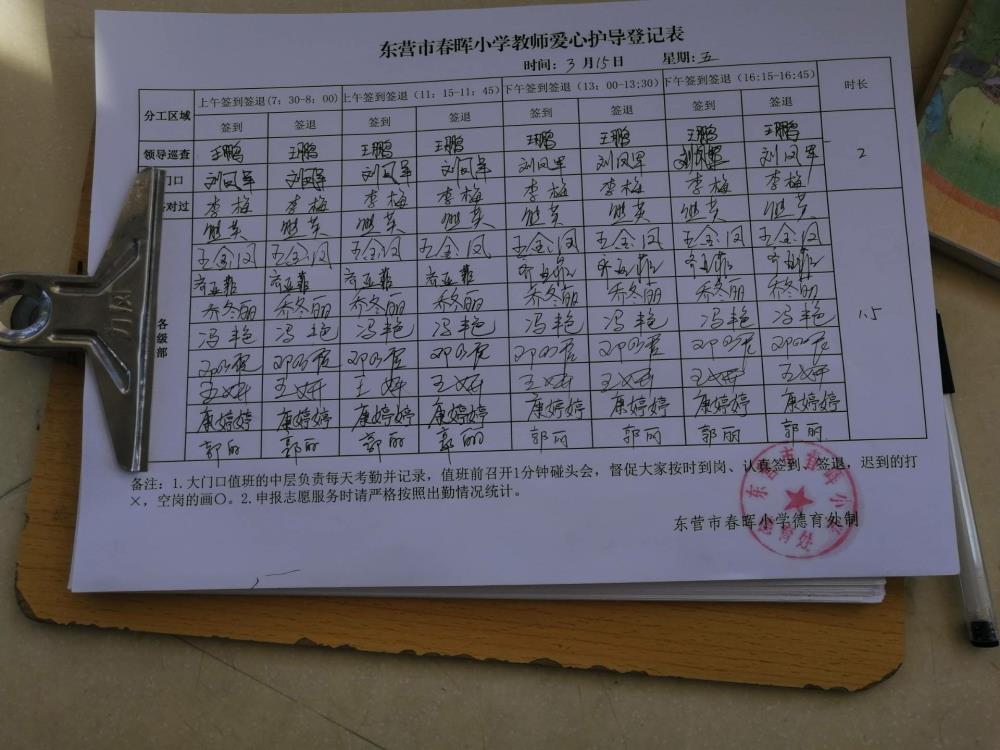 东营市春晖小学教师爱心护导登记表
时间：3月15日 星期：五
分工区域 上午签到签退(7：30-8：00) 上午签到签退（11：15-11：45） 下午签到签退（13：00-13:30） 下午签到签退（16:15-16:45） 时长
签到 签退 签到 签退 签到 签退 签到 签退
领导巡查 王鹏 王鹏 王鹏 王鹏 王鹏 王鹏 王鹏 王鹏 2
门口 刘凤军 刘凤军 刘凤军 刘凤军 刘凤军 刘凤军 刘凤军 刘凤军
对过 李梅 李梅 李梅 李梅 李梅 李梅 李梅 李梅
各级部 1.5
王金凤 王金凤 王金凤 王金凤 王金凤 王金凤 王金凤 王金凤
乔冬丽 乔冬丽 乔冬丽 乔冬丽 乔冬丽 乔冬丽 乔冬丽 乔冬丽
冯艳 冯艳 冯艳 冯艳 冯艳 冯艳 冯艳 冯艳
王妍 王妍 王妍 王妍 王妍 王妍 王妍 王妍
康婷婷 康婷婷 康婷婷 康婷婷 康婷婷 康婷婷 康婷婷 康婷婷
郭丽 郭丽 郭丽 郭丽 郭丽 郭丽 郭丽 郭丽
备注：1.大门口值班的中层负责每天考勤并记录，值班前召开1分钟碰头会，督促大家按时到岗、认真签到、签退，迟到的打
×，空岗的画〇。2.申报志愿服务时请严格按照出勤情况统计。
东营市春晖小学德育处制
东营市春晖小学
德育处